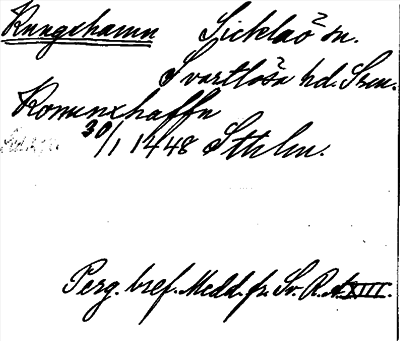 Kungshamn Sicklaö sn.
Svartlösa hd. Srm.
Konunxhaffn
30/1 1448 Sthlm.
Perg. bref. Medd. fr. Sv. R. A. XIII.